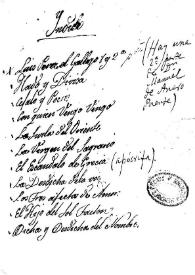 Indice
Luis Perez el Gallego 1ª y 2ª pte (Hay una
2ª parte
de Dn
Manuel
de Anero
Puente)
Hado y Divisa
Celo y
Con quien Vengo Vengo
La Sivila del Oriente
La Virgen del Sagrario
El Escandalo de Grecia (apócrifa).
La Desdicha de la voz
Los tres afectos de Amor.
El Hijo del Sol Faeton.
Dicha y Desdicha del Nombre.